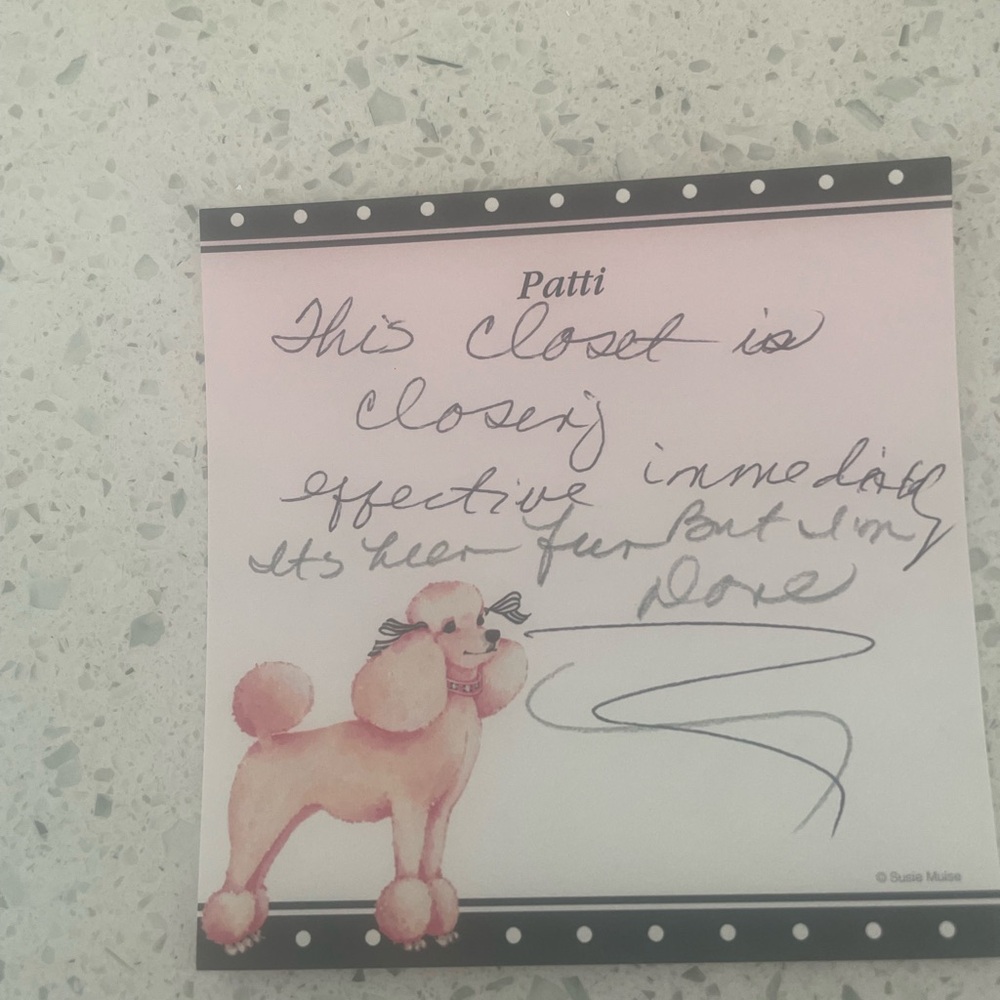 Patti
This closet is
closeing
effective immediatly
Its been fun But I'm
Done
© Susie Muise